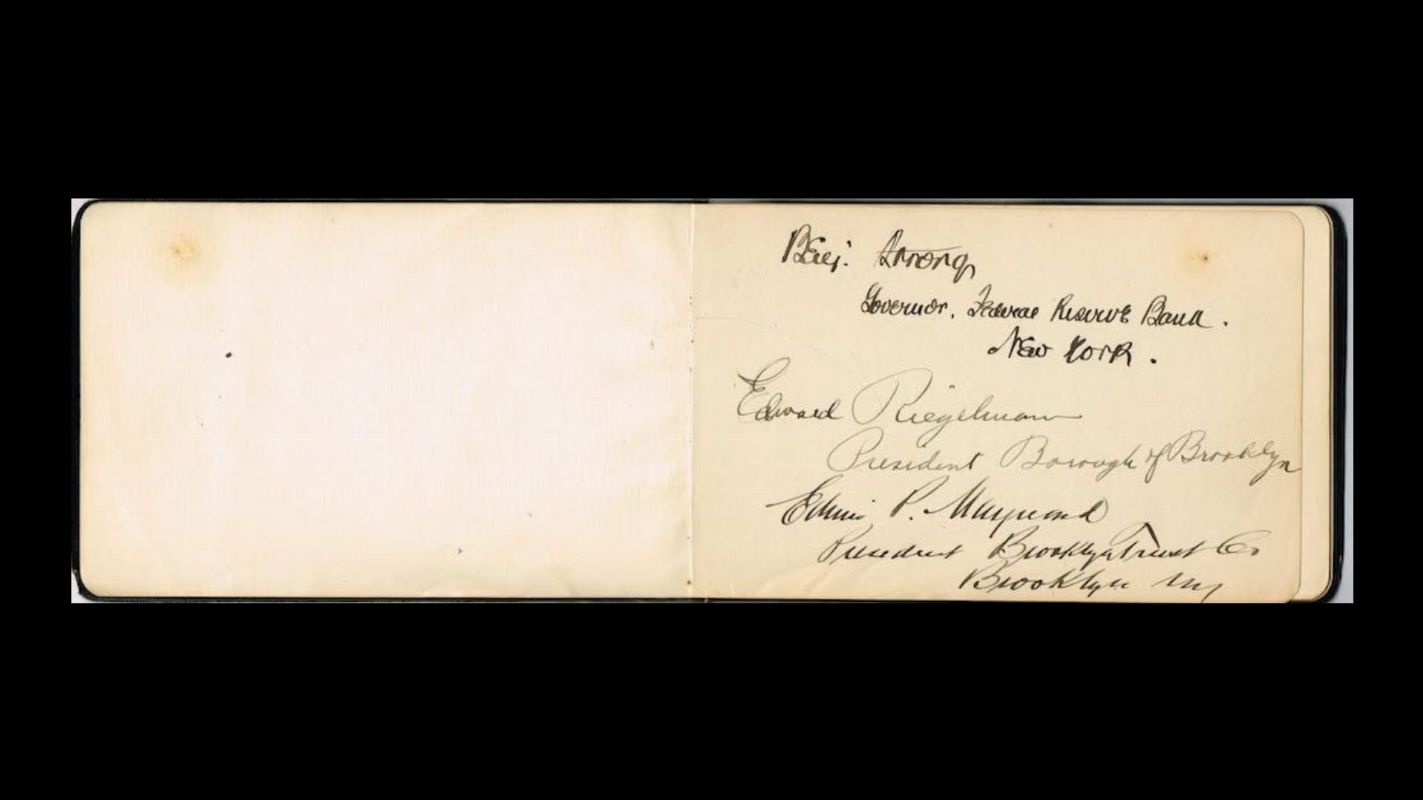 Benj. Strong
Governor. Federal Reserve Bank.
New York.
Edward Riegelmann
President Borough of Brooklyn
Edwin P. Maynard
President Brooklyn Trust Co
Brooklyn NY